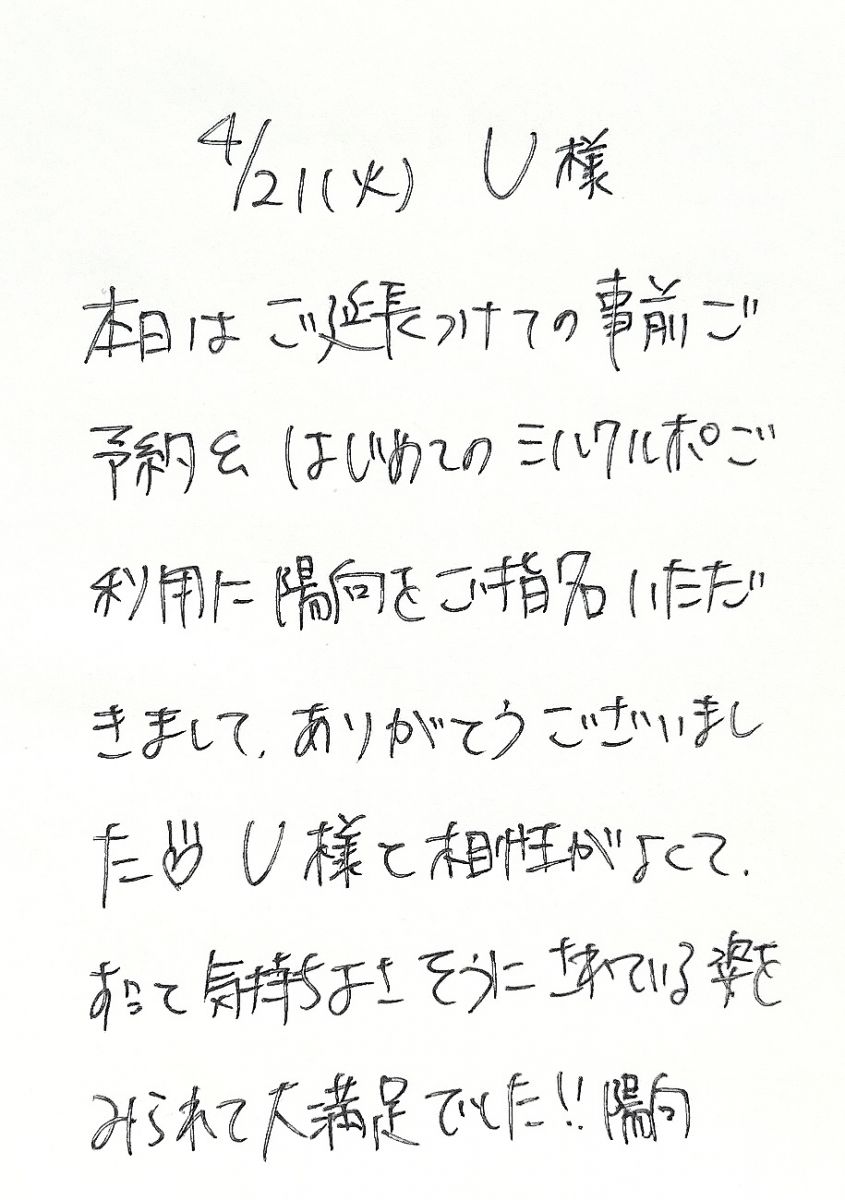 4/21(火) U様
本日はご延長つけての事前ご
予約を はじめての ミルクルポご
利用に 陽向をご指名いただ
きまして、ありがとうございまし
た♡ U様と相性がよくて、
ずっと気持ちよさそうにされている姿を
みられて大満足でした!! 陽向